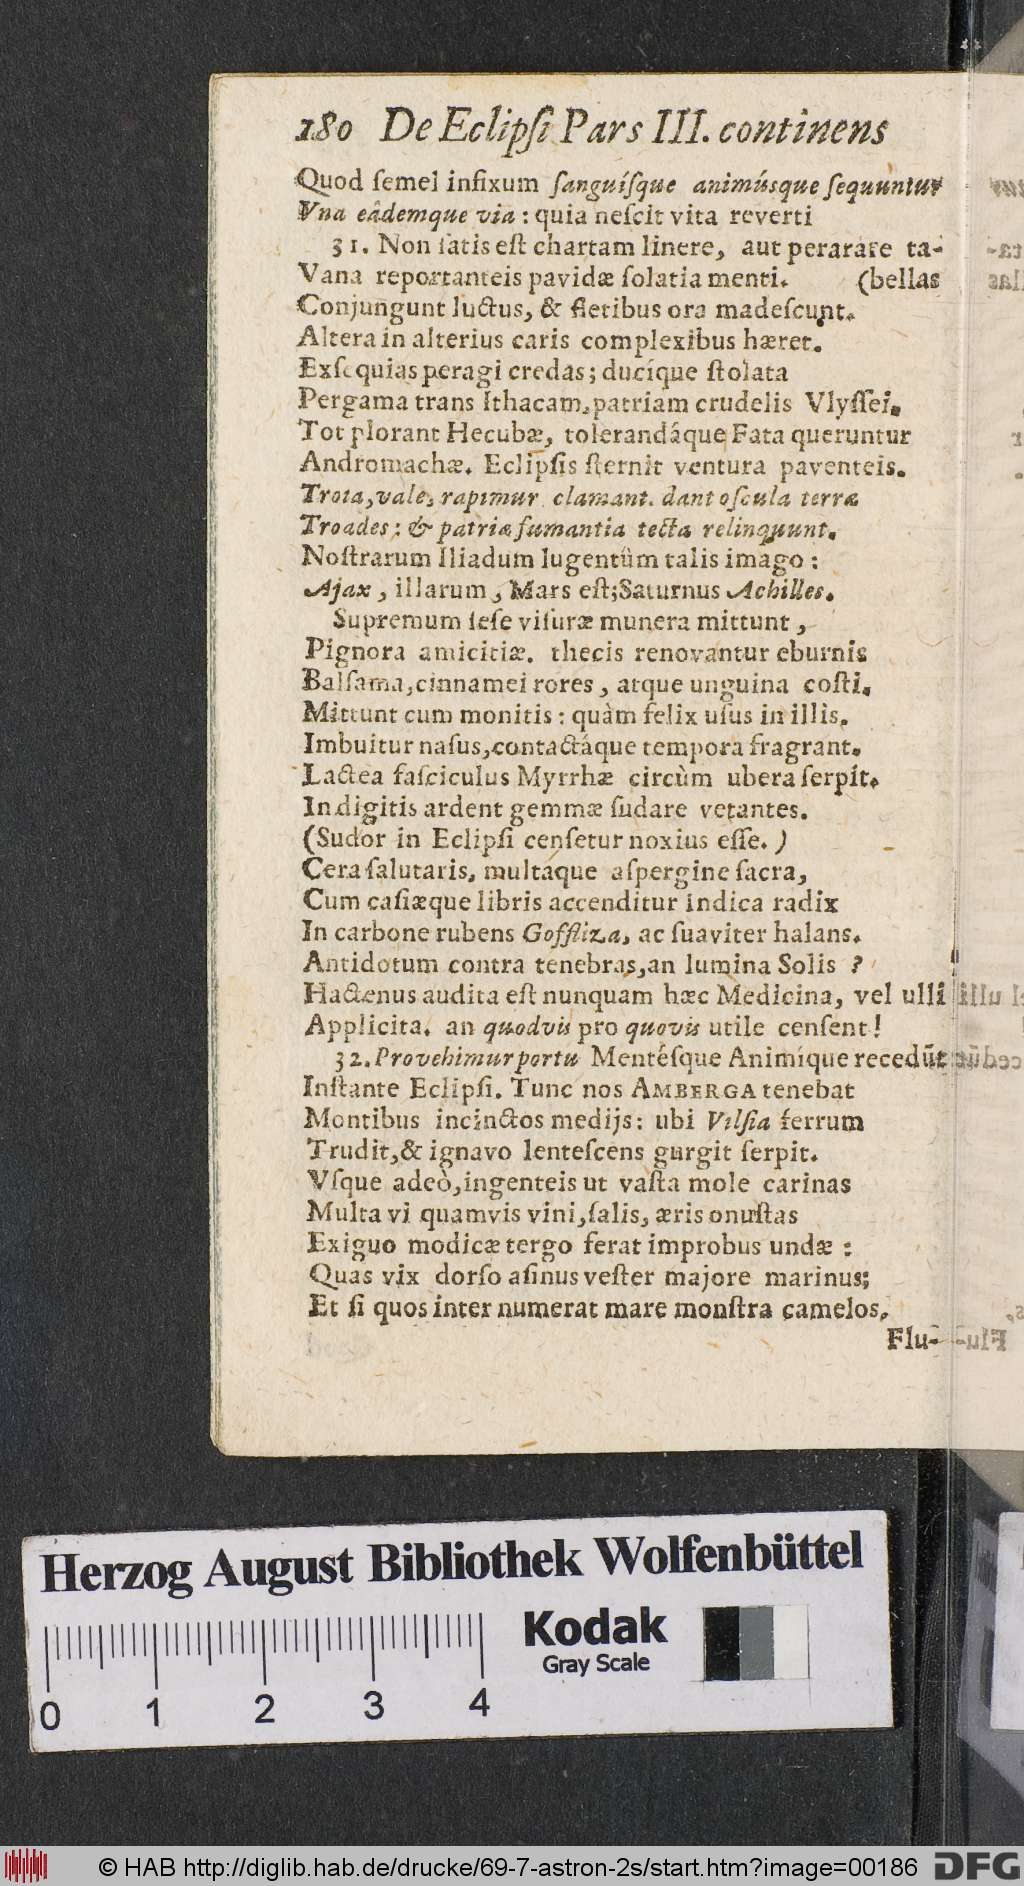 180 De Eclipſi Pars III. continens
Quod ſemel infixum ſanguíſque animúsque ſequuntur
Vna eâdemque via : quia neſcit vita reverti
31. Non ſatis eſt chartam linere, aut perarare ta-
Vana reportanteis pavidæ ſolatia menti. (bellas
Conjungunt luctus, & fletibus ora madeſcunt.
Altera in alterius caris complexibus hæret.
Exſequias peragi credas; ducíque ſtolata
Pergama trans Ithacam, patriam crudelis Vlyſſei.
Tot plorant Hecubæ, tolerandáque Fata queruntur
Andromachæ. Eclipſis ſternit ventura paventeis.
Troia, vale, rapimur clamant. dant oſcula terræ
Troades; & patriæ fumantia tecta relinquunt.
Noſtrarum Iliadum lugentûm talis imago :
Ajax, illarum, Mars eſt; Saturnus Achilles.
Supremum ſeſe viſuræ munera mittunt,
Pignora amicitiæ. thecis renovantur eburnis
Balſama, cinnamei rores, atque unguina coſti.
Mittunt cum monitis : quàm felix uſus in illis.
Imbuitur naſus, contactáque tempora fragrant.
Lactea faſciculus Myrrhæ circùm ubera ſerpit.
In digitis ardent gemmæ ſudare vetantes.
(Sudor in Eclipſi cenſetur noxius eſſe.)
Cera ſalutaris, multáque aſpergine ſacra,
Cum caſiæque libris accenditur indica radix
In carbone rubens Goffliza, ac ſuaviter halans.
Antidotum contra tenebras, an lumina Solis ?
Hactenus audita eſt nunquam hæc Medicina, vel ulli
Applicita. an quodvis pro quovis utile cenſent!
32. Provehimur portu Mentéſque Animíque recedūt
Inſtante Eclipſi. Tunc nos AMBERGA tenebat
Montibus incinctos medijs: ubi Vilſia ferrum
Trudit, & ignavo lenteſcens gurgit ſerpit.
Vſque adeò, ingenteis ut vaſta mole carinas
Multa vi quamvis vini, ſalis, æris onuſtas
Exiguo modicæ tergo ferat improbus undæ :
Quas vix dorſo aſinus veſter majore marinus;
Et ſi quos inter numerat mare monſtra camelos.
Flu-
Herzog August Bibliothek Wolfenbüttel
Kodak
Gray Scale
0 1 2 3 4
© HAB http://diglib.hab.de/drucke/69-7-astron-2s/start.htm?image=00186
DFG